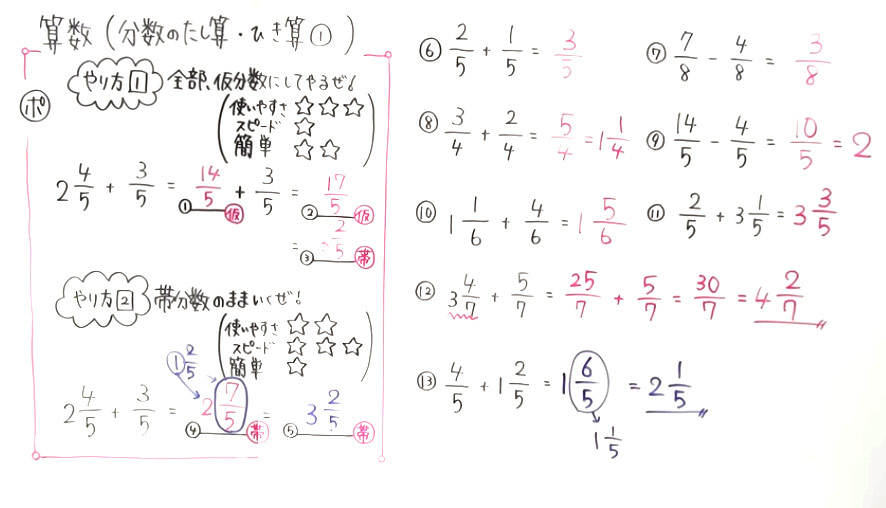 算数(分数のたし算・ひき算①)
ポ
やり方1 全部、仮分数にしてやるぜ!
使いやすさ ☆☆☆
スピード ☆
簡単 ☆☆
2 4/5 + 3/5 = 14/5 + 3/5 = 17/5
① 仮 ② 仮
= 3 2/5
③ 帯
やり方2 帯分数のままいくぜ!
使いやすさ ☆☆
スピード ☆☆☆
簡単 ☆
1 2/5
2 4/5 + 3/5 = 2 7/5 = 3 2/5
④ 帯 ⑤ 帯
⑥ 2/5 + 1/5 = 3/5
⑦ 7/8 - 4/8 = 3/8
⑧ 3/4 + 2/4 = 5/4 = 1 1/4
⑨ 14/5 - 4/5 = 10/5 = 2
⑩ 1 1/6 + 4/6 = 1 5/6
⑪ 2/5 + 3 1/5 = 3 3/5
⑫ 3 4/7 + 5/7 = 25/7 + 5/7 = 30/7 = 4 2/7
⑬ 4/5 + 1 2/5 = 1 6/5 = 2 1/5
1 1/5